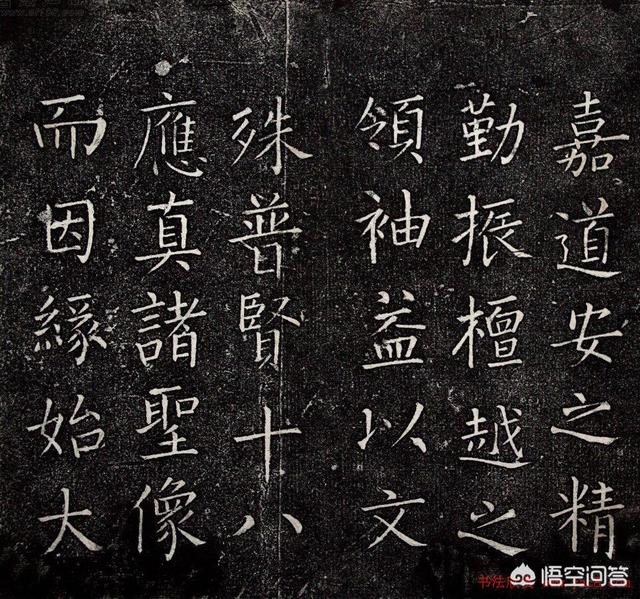 嘉道安之精
勤振檀越之
領袖益以文
殊普賢十八
應真諸聖像
而因緣始大
悟空问答